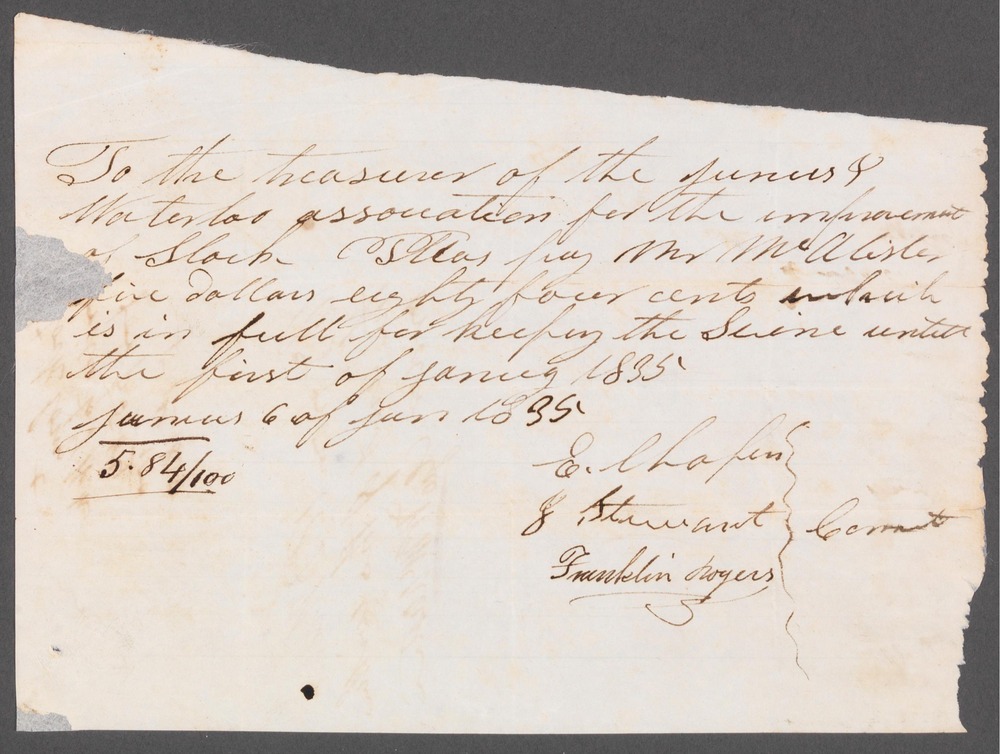 To the treasurer of the junius &
Waterloo assouation for the improvement
of Stock Pleas pay Mr McAlister
five dollars eighty four cents which
is in full for keeping the Seine untill
the first of janury 1835
junius 6 of jan 1835
5.84/100
E. Chafin
J Stewart Comt
Franklin Rogers